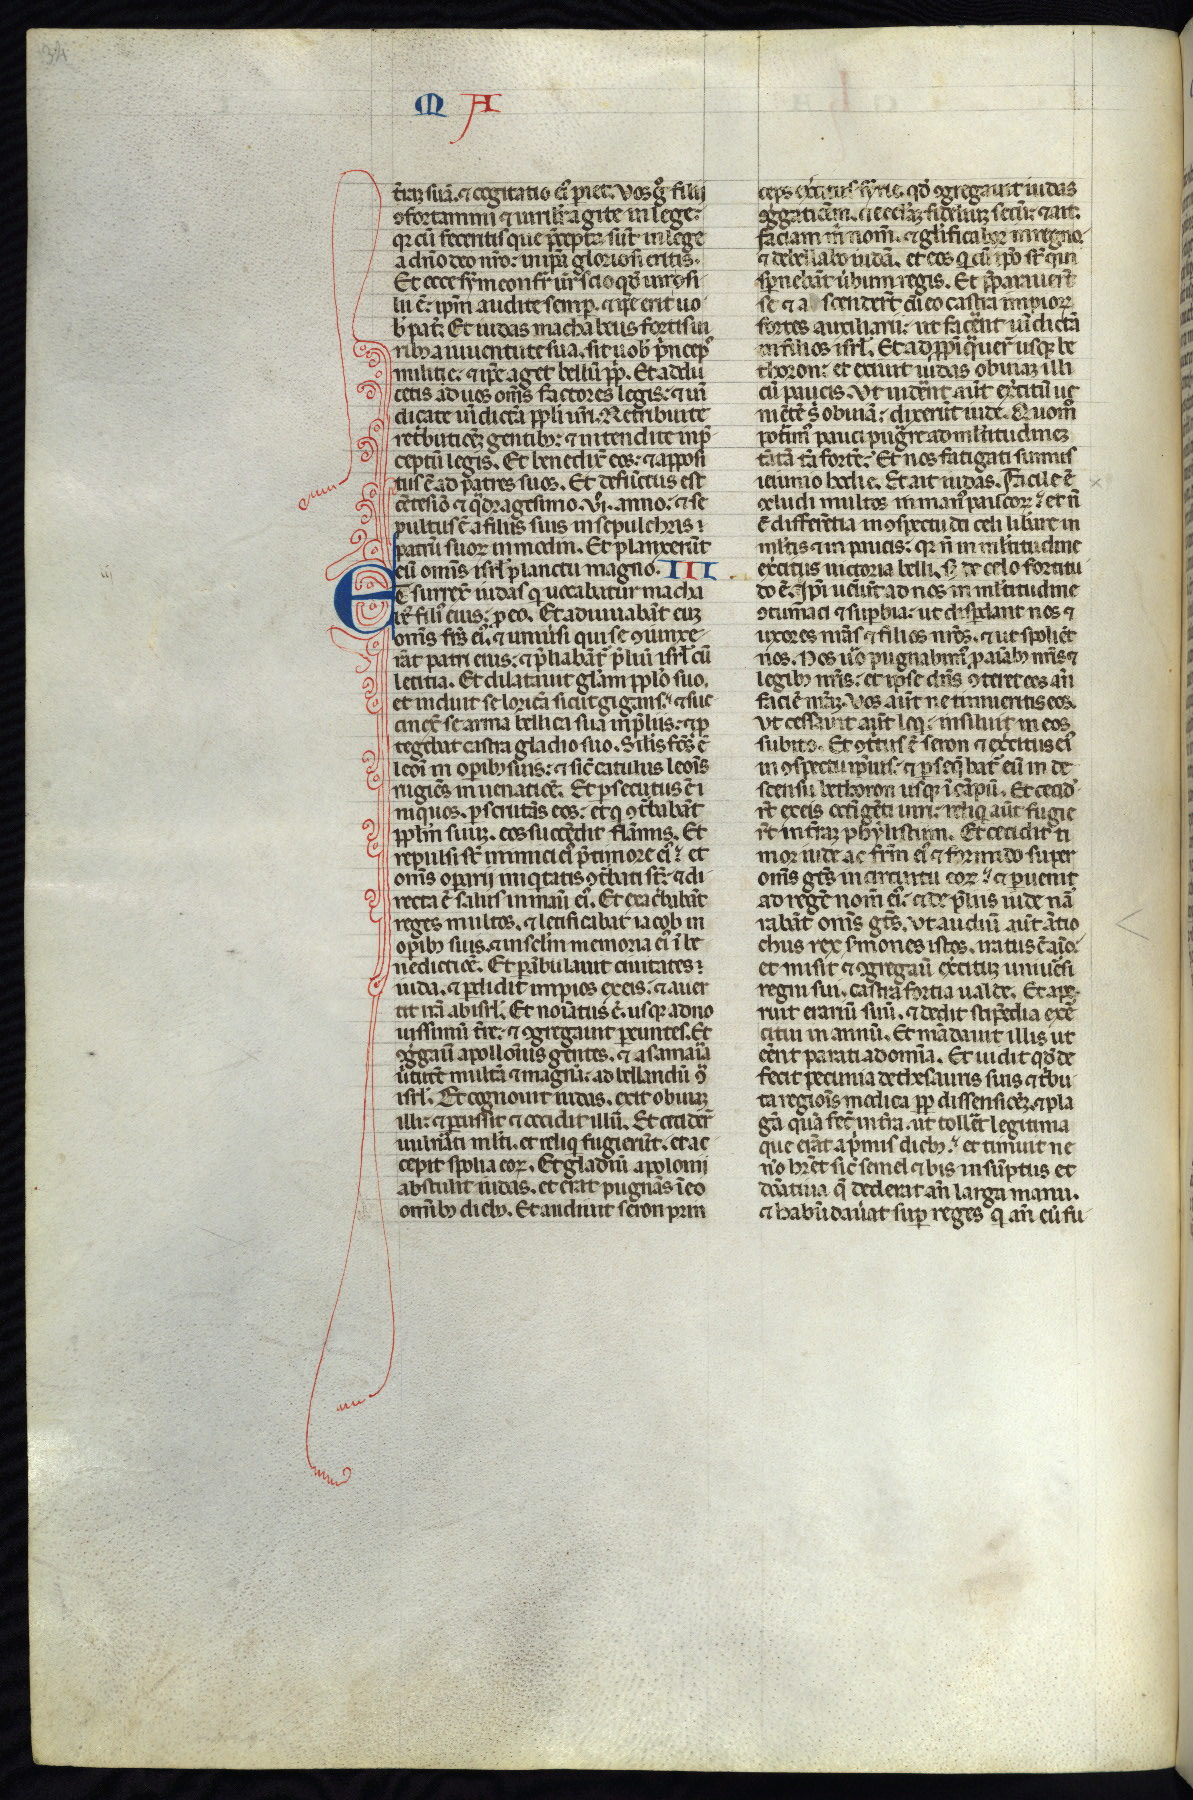 34
M A
t̄raȝ suā. ⁊ cogitatio ei᷒ ꝑiet. Vos g̊ filii
ꝯfortamini ⁊ uirilit̄ agite in lege:
qr cū feceritis que p̄cepta sūt in lege
a dn̄o deo nr̄o: in ip̄a gloriosi eritis.
Et ecce symeon fr̄ ur̄ scio qd̄ uir ꝯsi
lii ē: ip̄m audite semꝑ. ⁊ ip̄e erit uo
b̄ pat̄. Et iudas machabeus fortis ui
ribȝ a iuuentute sua. sit uob̄ p̄nceps
militie: ⁊ ip̄e aget bellū pp̄. Et addu
cetis ad uos om̄s factores legis: ⁊ uī
dicate uīdictā ppl̄i ur̄i. Retribuite
ret̄butōeȝ gentibȝ: ⁊ intendite in p̄
ceptū legis. Et benedix̄ eos: ⁊ apposi
tus ē ad patres suos. Et defūctus est
cētesiō ⁊ q̄dragesimo. vi. anno: ⁊ se
pultus ē a filiis suis in sepulchris
patrū suoꝝ in modin. Et planxerūt
eū om̄is isrl̄ planctu magno. III
Et surrex̄ iudas q̄ uocabatur macha
b̄ꝰ filiꝰ eius: ꝑ eo. Et adiuuabāt euȝ
om̄s fr̄s ei᷒. ⁊ uniūsi qui se ꝯiunxe
rāt patri eius: ⁊ p̄liabāt̄ p̄liū isrl̄ cū
letitia. Et dilatauit gl̄am ppl̄o suo.
et induit se loricā sicut gigans: ⁊ suc
cinx̄ se arma bellica sua in p̄liis: ⁊ ꝓ
tegebat castra gladio suo. Similis fc̄s ē
leōi in opibȝ suis: ⁊ sic̄ catulus leōis
rugiēs in uenatiōē. Et ꝑsecutus ē i
niquos. ꝑscrutās eos: et q̄ ꝯt̄babāt
ppl̄m suuȝ. eos succēdit flāmis. Et
repulsi st̄ inimici ei᷒ p̄ timore ei᷒: et
om̄s oꝑarii iniq̄tatis ꝯt̄bati st̄: ⁊ di
recta ē salus in manu ei᷒. Et exac̄babāt
reges multos. ⁊ letificabat iacob in
opibȝ suis. ⁊ in sc̄lm memoria ei᷒ ī be
nedictiōē. Et ꝑābulauit ciuitates
iuda. ⁊ ꝑdidit impios ex eis: ⁊ auer
tit irā ab isrl̄. Et noīatus ē. usqȝ ad no
uissimū t̄re: ⁊ ꝯgregauit ꝑeuntes. Et
ꝯg̊gauit apollonius gentes. ⁊ a samaria
ūtutē multā ⁊ magnā: ad bellandū ꝯ̄
isrl̄. Et cognouit iudas. exit obuiaȝ
illi: ⁊ ꝑcussit ⁊ occidit illū. Et cecider̄t
uulnāti ml̄ti. et reliq̄ fugierūt. et ac
cepit spolia eoꝝ. Et gladiū apolonii
abstulit iudas. et erat pugnās ī eo
omībȝ diebȝ. Et audiuit seron prin
ceps exercitus syrie. qd̄ ꝯgregauit iudas
ꝯg̊gatiōem. ⁊ ecc̄iaȝ fideliuȝ secū: ⁊ ait:
faciam m̄ nom̄. ⁊ gl̄ificabor in regno.
⁊ debellabo iudā. et eos q̄ cū ip̄o st̄ qui
sp̄nebāt ūbum regis. Et p̄parauerūt
se ⁊ ascendert̄ cū eo castra impioꝝ
fortes auxiliarii: ut facēnt uīdictā
in filios isrl̄. Et ad ꝓpi q̄uer̄ usqȝ be
thoron: et exiuit iudas obuiaȝ illi
cū paucis. Vt uidēnt aūt exc̄itū ue
niētē s̄ obuiā: dixerūt iude. Quomō
pot̄im᷒ pauci pugn̄re ad ml̄titudineȝ
tātā tā fortē: Et nos fatigati sumus
ieiunio hodie. Et ait iudas. Facile ē
ↄcludi multos in man᷒ paucoꝝ: et n̄
ē differētia in ꝯspectu dei celi lib̄are in
ml̄tis ⁊ in paucis: qr n̄ in ml̄titudine
exc̄itus uictoria belli. sȝ de celo fortitu
do ē. Ip̄i ueīūt ad nos in ml̄titudine
ꝯtumaci ⁊ suꝑbia: ut disꝑdant nos ⁊
uxores nr̄as ⁊ filios nr̄os. ⁊ ut spoliēt
nos. Nos ū̊ pugnabim᷒ ꝑ aīabȝ nr̄is ⁊
legibȝ nr̄is: et ip̄se dn̄s ꝯteret eos an̄
faciē nr̄aȝ. Vos aūt ne timueritis eos.
Vt cessauit aūt loq̄: insiluit in eos
subito. Et ꝯt̄tus ē seron ⁊ exc̄itus ei᷒
in ꝯspectu ip̄ius: ⁊ ꝑseq̄bat̄ eū in de
scensu bethoron usqȝ ī cāpū. Et cecid̄
r̄t ex eis octīgēti uiri: reliq̄ aūt fugie
r̄t in t̄raȝ phylistiim. Et cecidit ti
mor iude ac fr̄m ei᷒ ⁊ formido super
om̄s gt̄s in circuitu eoꝝ: ⁊ ꝑuenit
ad regē nom̄ ei᷒. ⁊ de p̄liis iude nā
rabāt om̄s gt̄s. Vt audiuī aūt ātio
chus rex s̄mones istos. iratus ē aīo:
et misit ⁊ ꝯgregauī exc̄ituȝ uniūsi
regni sui. castra fortia ualde. Et ape
ruit erariū suū. ⁊ dedit stip̄edia exē
citui in annū. Et mādauit illis ut
eēnt parati ad omīa. Et uidit qd̄ de
fecit pecunia de thesauris suis ⁊ t̄bu
ta regiōis modica pp̄ dissensiōeȝ. ⁊ pla
gā quā fec̄ in t̄ra. ut tollēt legitima
que erāt a p̄mis diebȝ: et timuit ne
nō hr̄et sic̄ semel ⁊ bis in sūptus et
dōatiua q̄ dederat an̄ larga manu.
⁊ habūdauāt suꝑ reges q̄ an̄ eū fu